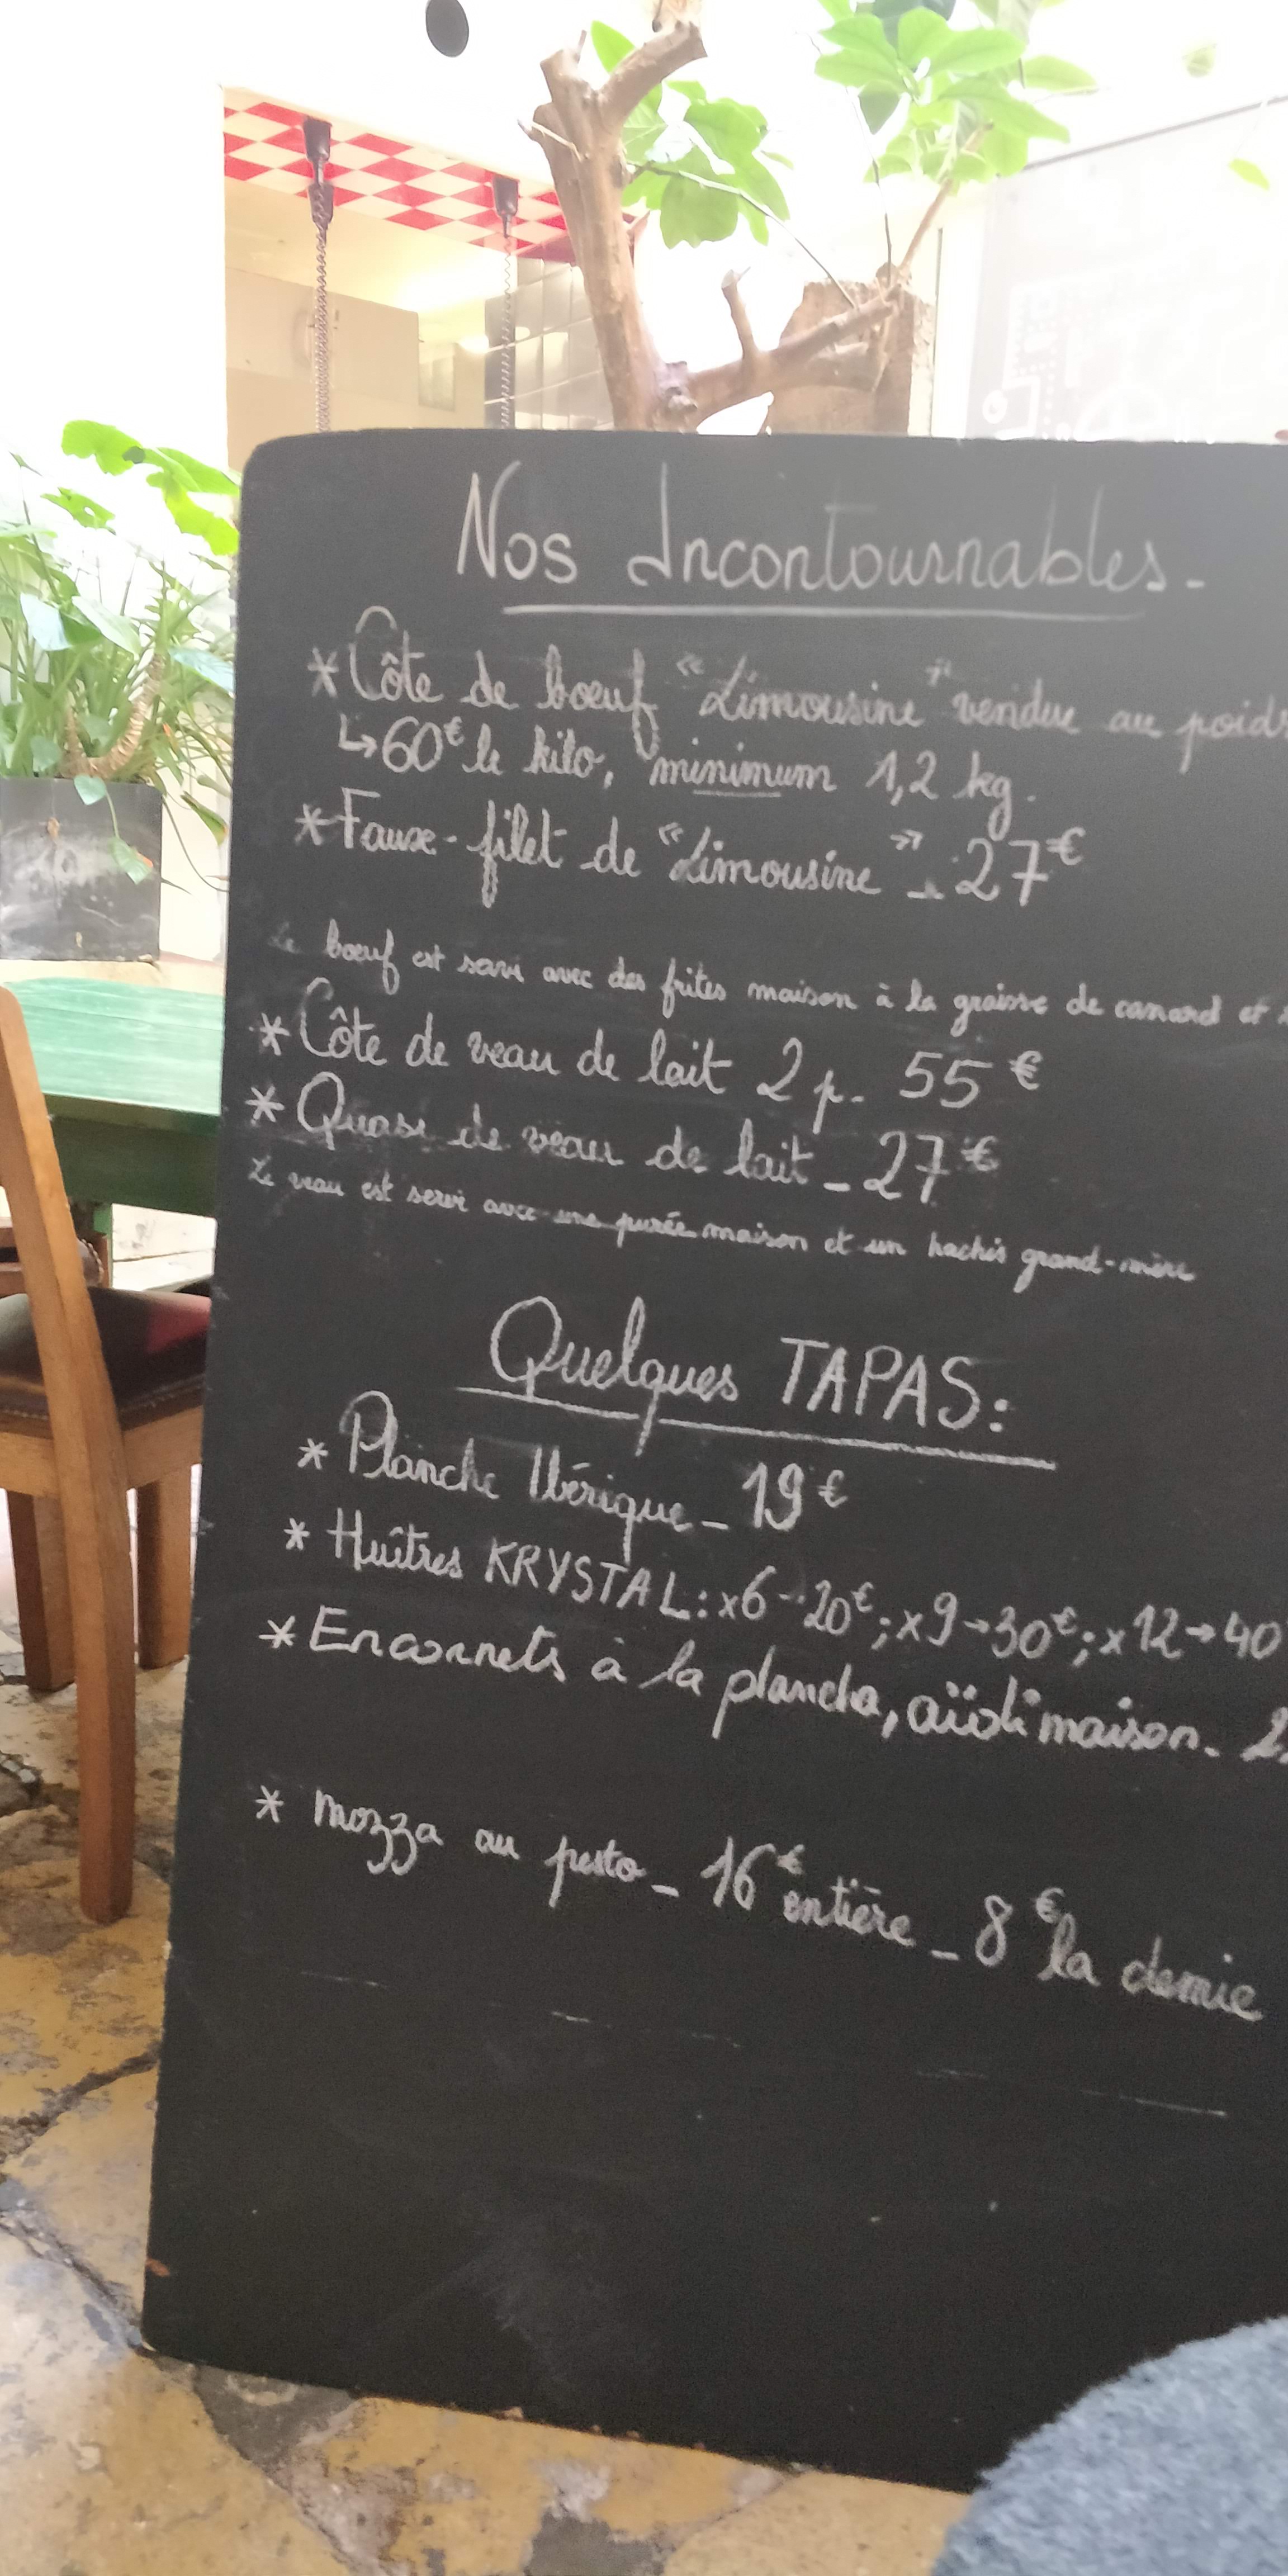 Nos Incontournables -
* Côte de bœuf "Limousine" vendue au poids
↳ 60€ le kilo, minimum 1,2 kg.
* Faux-filet de "Limousine" - 27€
Le bœuf est servi avec des frites maison à la graisse de canard et
* Côte de veau de lait 2p - 55€
* Quasi de veau de lait - 27€
Le veau est servi avec une purée maison et un hachis grand-mère
Quelques TAPAS:
* Planche Ibérique - 19€
* Huîtres KRYSTAL: x6 → 20€; x9 → 30€; x12 → 40
* Encornets à la plancha, aïoli maison -
* mozza au pesto - 16€ entière - 8€ la demie